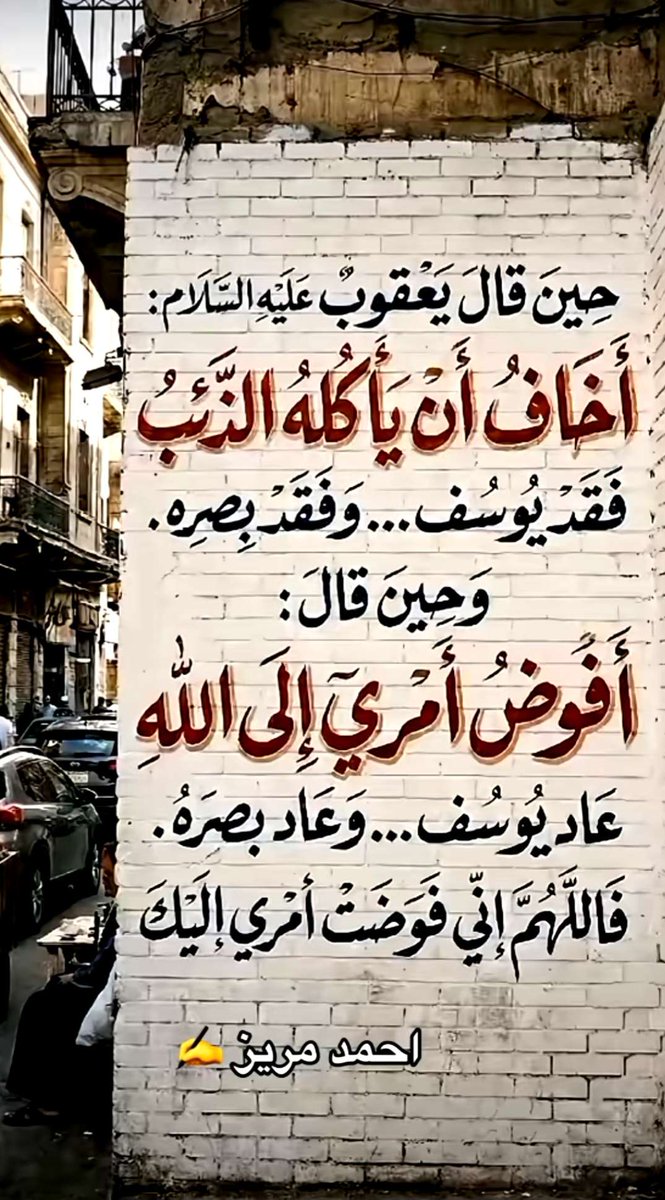 حِينَ قَالَ يَعْقوبٌ عَلَيْهِ السَّلَام:
أَخَافُ أَنْ يَأْكُلهُ الذِّئبُ
فَقَدْ يُوسُف... وَفَقَدْ بِصرِه.
وَحِينَ قَالَ:
أَفَوضُ أَمْرِيٓ إِلَى اللهِ
عَاد يُوسُف... وَعَاد بصرَهُ.
فَاللَّهُمَّ إنّي فَوَضَتْ أمْرِي إلَيْكَ
احمد مريز ✍️